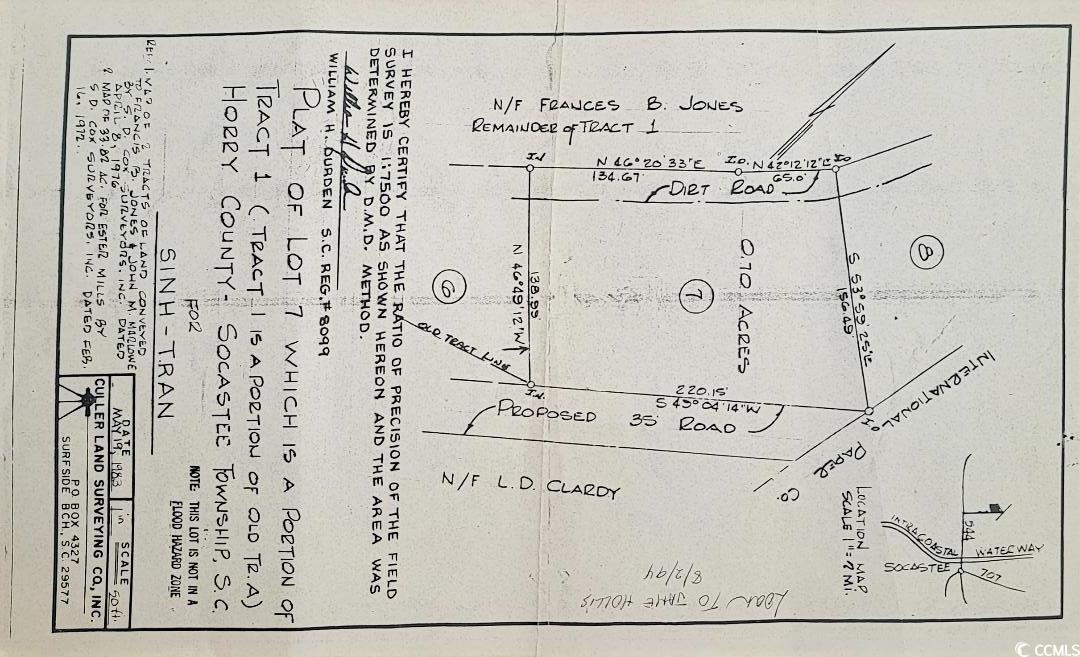 N/F FRANCES B. JONES
REMAINDER of TRACT 1
I.N
N 46°20'33"E
134.67'
I.O.
N 42°12'12"E
65.0'
I.O
DIRT ROAD
N 46°49'12"W
138.99
0.70 ACRES
6
7
8
S 53°59'25"E
156.49'
OLD TRACT LINE
I.N.
220.15'
S 45°04'14"W
I.O
PROPOSED 35' ROAD
INTERNATIONAL
PAPER CO.
N/F L.D. CLARDY
LOCATION MAP
SCALE 1"=2 MI.
INTRACOASTAL WATERWAY
544
SOCASTEE
707
LOAN TO JAME HOLLIS
8/2/94
I HEREBY CERTIFY THAT THE RATIO OF PRECISION OF THE FIELD
SURVEY IS 1:7500 AS SHOWN HEREON AND THE AREA WAS
DETERMINED BY D.M.D. METHOD.
WILLIAM H. DURDEN S.C. REG.# 8099
PLAT OF LOT 7 WHICH IS A PORTION OF
TRACT 1 (TRACT 1 IS A PORTION OF OLD TR.A)
HORRY COUNTY- SOCASTEE TOWNSHIP, S.C
FOR
SINH-TRAN
NOTE: THIS LOT IS NOT IN A
FLOOD HAZARD ZONE
REF: 1. MAP OF 2 TRACTS OF LAND CONVEYED
TO FRANCIS B. JONES & JOHN M. MARLOWE
BY S.D. COX SURVEYORS, INC. DATED
APRIL 8, 1976.
2 MAP OF 33.82 AC. FOR ESTER MILLS BY
S D. COX SURVEYORS, INC. DATED FEB.
16, 1972.
DATE
MAY 19, 1983
SCALE
1 in 50ft.
CULLER LAND SURVEYING CO., INC.
P.O BOX 4327
SURFSIDE BCH., S.C. 29577
CCMLS